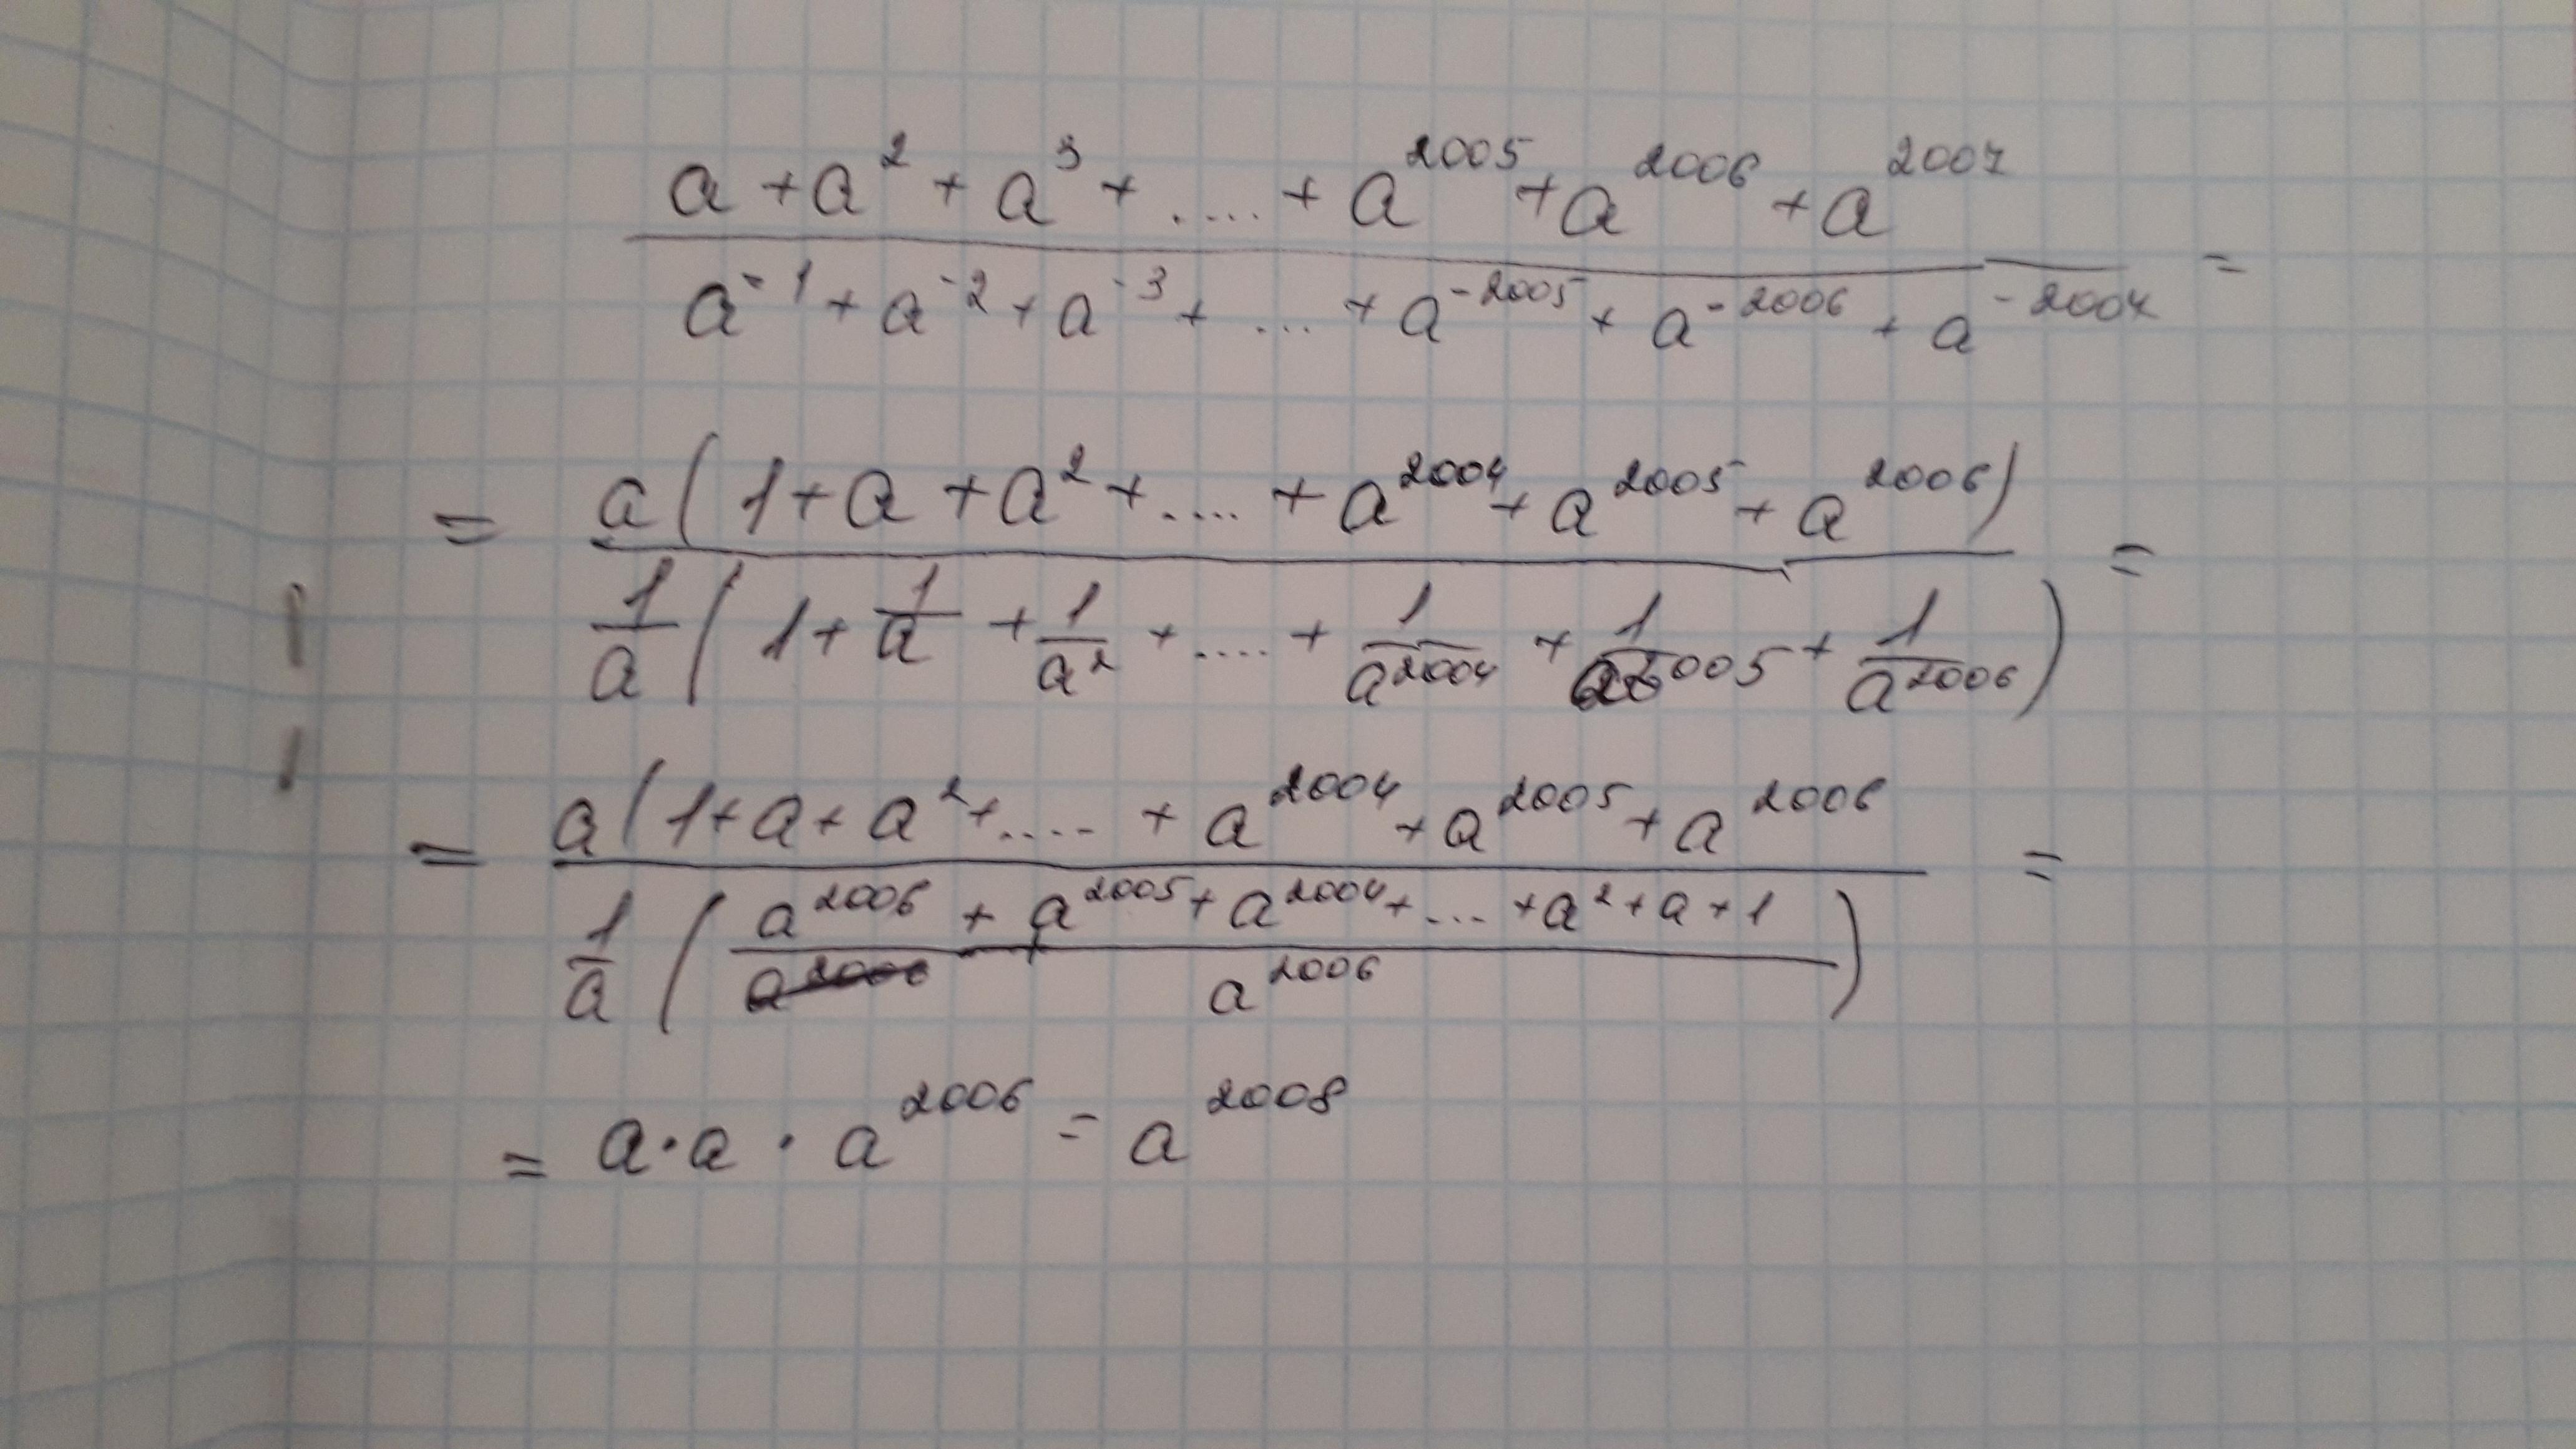 a + a² + a³ + .... + a²⁰⁰⁵ + a²⁰⁰⁶ + a²⁰⁰⁷
a⁻¹ + a⁻² + a⁻³ + .... + a⁻²⁰⁰⁵ + a⁻²⁰⁰⁶ + a⁻²⁰⁰⁷ =
= a(1 + a + a² + .... + a²⁰⁰⁴ + a²⁰⁰⁵ + a²⁰⁰⁶)
1/a (1 + 1/a + 1/a² + .... + 1/a²⁰⁰⁴ + 1/a²⁰⁰⁵ + 1/a²⁰⁰⁶) =
= a(1 + a + a² + .... + a²⁰⁰⁴ + a²⁰⁰⁵ + a²⁰⁰⁶
1/a (a²⁰⁰⁶ + a²⁰⁰⁵ + a²⁰⁰⁴ + .... + a² + a + 1 / a²⁰⁰⁶) =
= a · a · a²⁰⁰⁶ = a²⁰⁰⁸